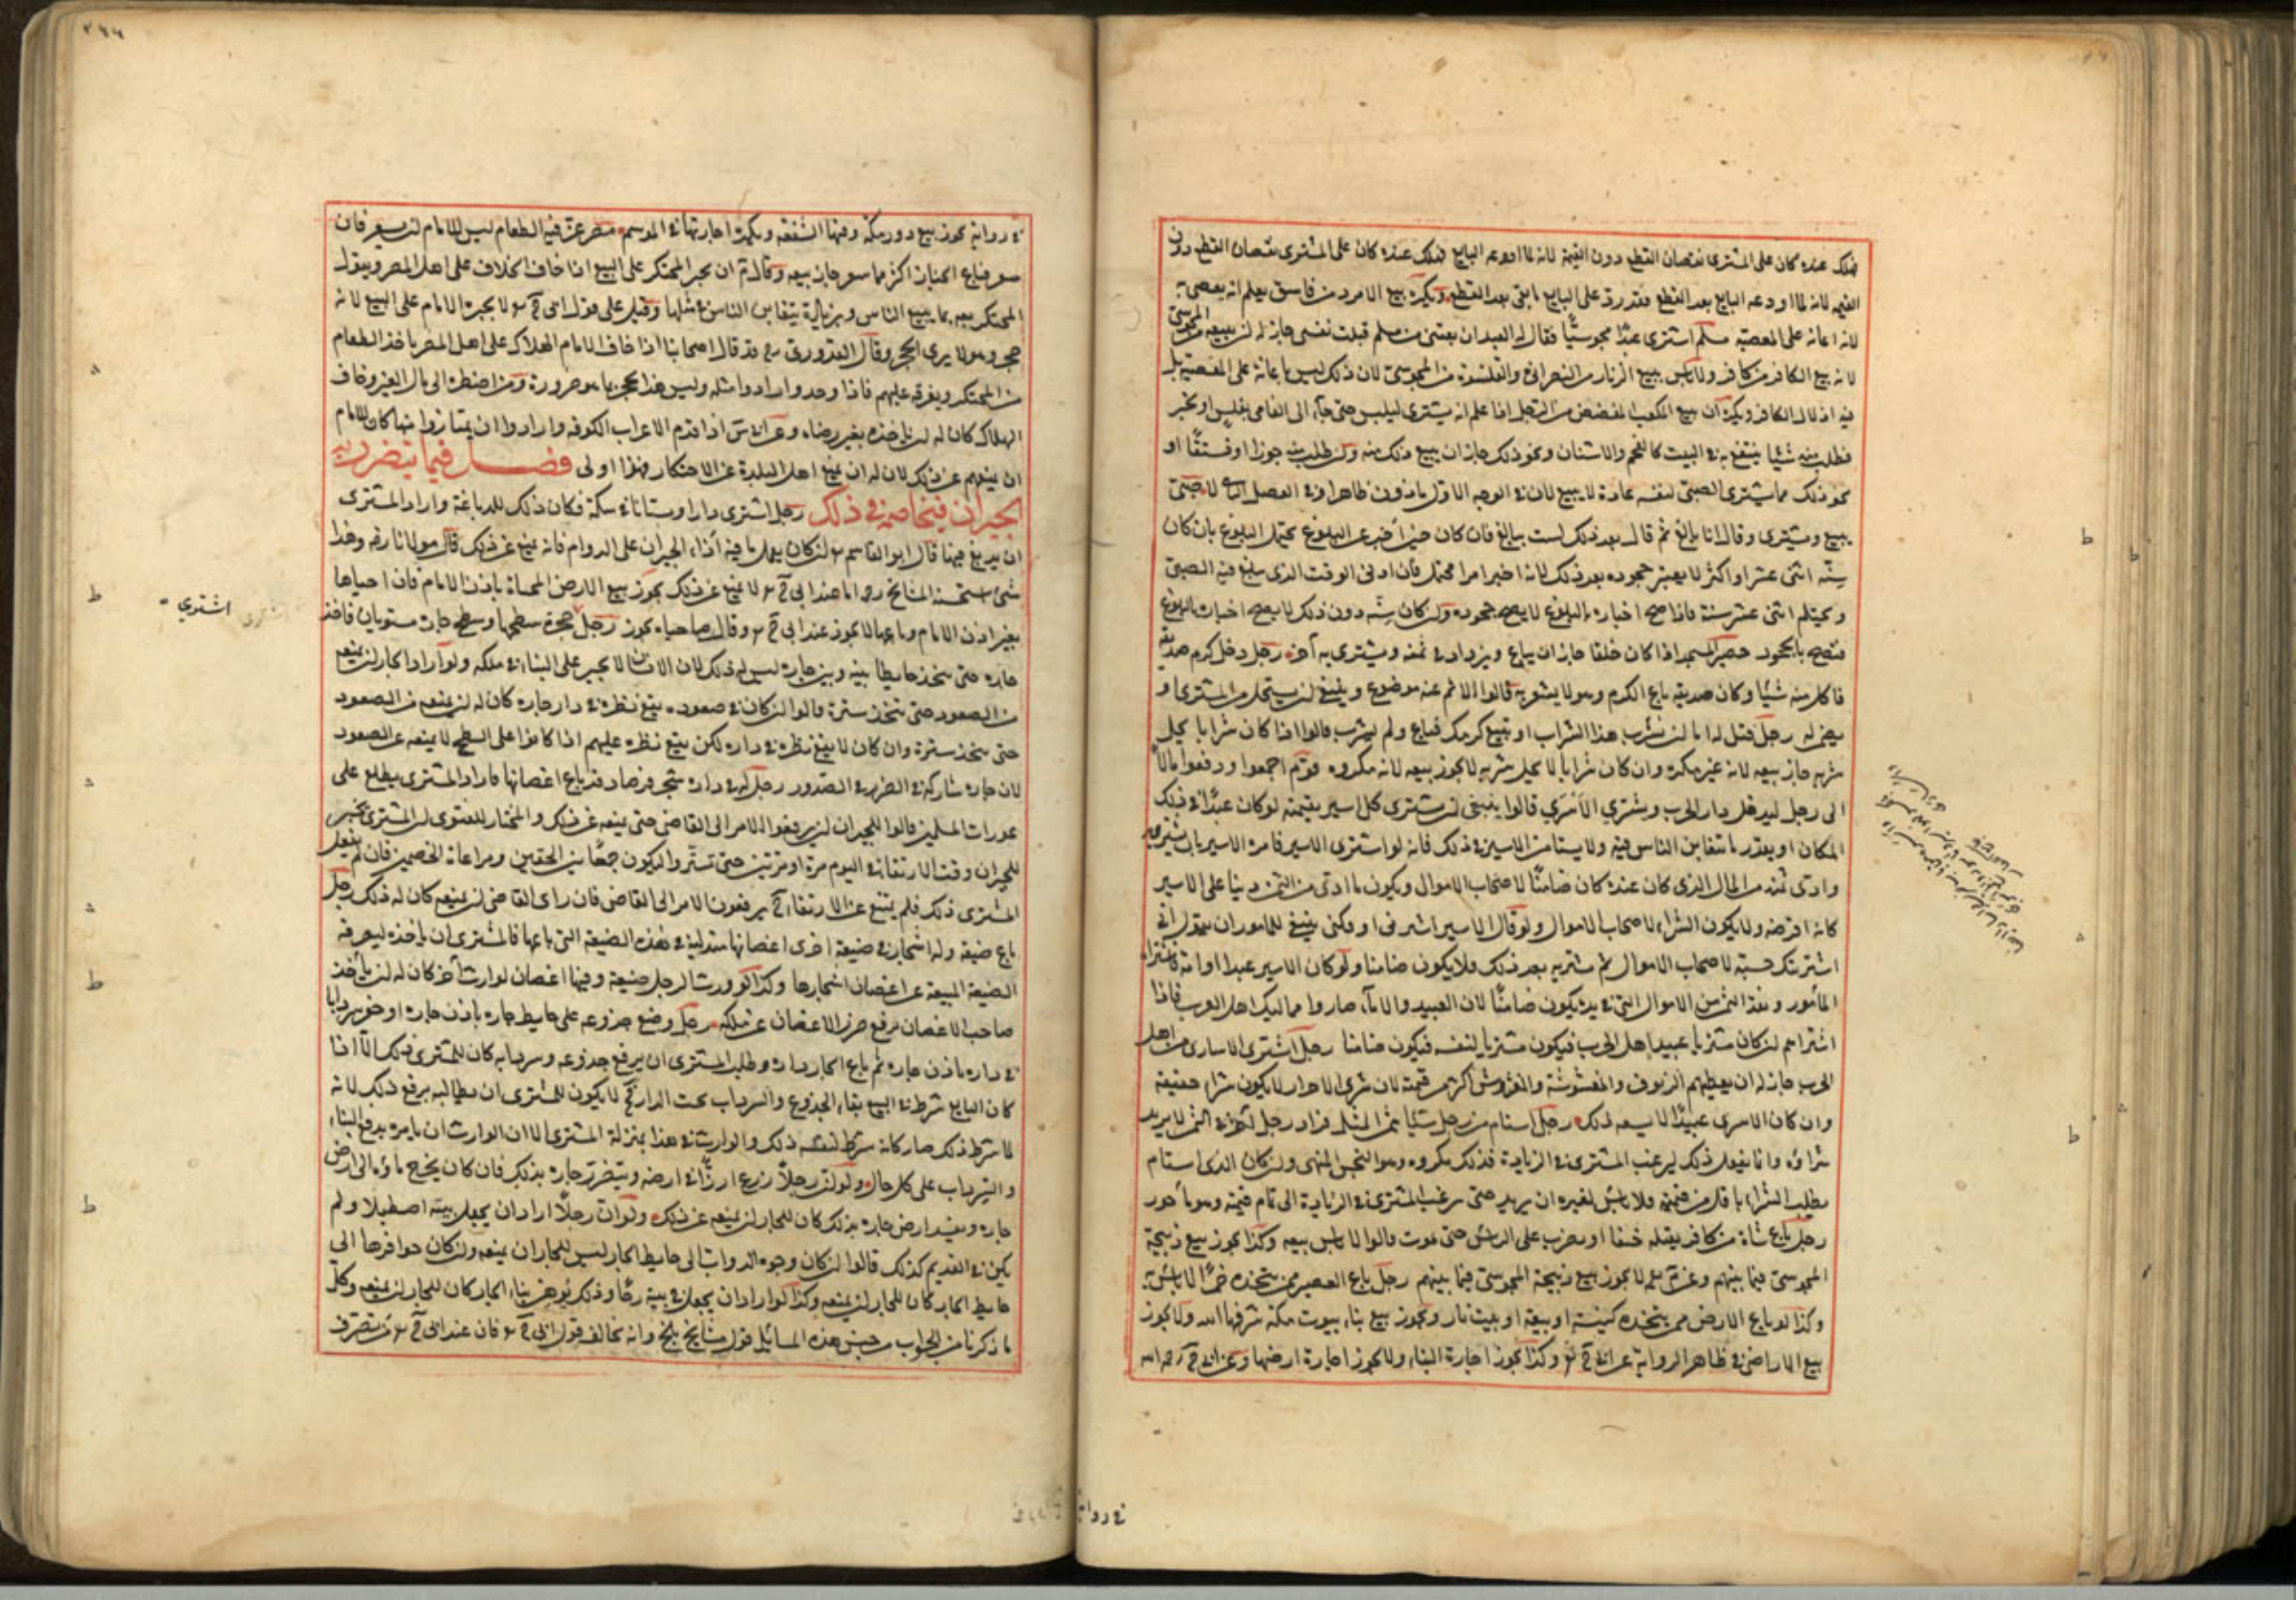 فهلك عنده كان على المشترى نقصان القطع دون القيمة لانه لما اودعه البايع فهلك عنده كان على المشترى نقصان القطع دون
القيمه لانه لما اودعه البايع بعد القطع فقد رد على البايع ما بقى بعد القطع ويكره بيع الامرد من فاسق يعلم انه يعصى به
لانه اعانه على المعصيه مسلم اشترى عبدًا مجوسيًّا فقال له العبد ان بعتنى من مسلم قتلت نفسى جاز له ان يبيعه من المجوسى
لانه بيع الكافر من كافر ولا باس ببيع الزنار من النصرانى والقلنسوة من المجوسى لان ذلك ليس باعانة على المعصية بل
فيه اذلال الكافر ويكره ان يبيع المكعب المفضض من الرجل اذا علم انه يشترى ليلبس حتى جاء الى الفامى بفلس او بخبز
فطلب منه شيئا ينتفع به فى البيت كالفحم والاشنان ونحو ذلك جاز ان يبيع ذلك منه وان طلب منه جوزا او فستقًا او
نحو ذلك مما يشترى الصبى لنفسه عادة لا يبيع لان فى الوجه الاول ماذون ظاهرا وفى الفصل الثانى لا صبى
يبيع ويشترى وقال انا بالغ ثم قال بعد ذلك لست ببالغ فان كان حين اخبر عن البلوغ يحتمل البلوغ بان كان
سنّه اثنى عشر او اكثر لا يعتبر جحوده بعد ذلك لانه اخبر امرا محتملا فان ادنى الوقت الذى يبلغ فيه الصبى
ويحتلم اثنى عشر سنة فاذا صح اخباره بالبلوغ لا يصح جحوده وان كان سنّه دون ذلك لا يصح اخباره بالبلوغ
فتصح بالجحود حصير المسجد اذا كان خلقا جاز ان يباع ويزداد فى ثمنه ويشترى به آخر رجل دخل كرم صديقه
فاكل منه شيئا وكان صديقه باع الكرم وهو لا يشعر به قالوا الاثم عنه موضوع وينبغى ان يستحل من المشترى او
يضمن له رجل قيل له اما ان تشرب هذا الشراب او تبيع كرمك فباع ولم يشرب قالوا اذا كان شرابا يحل
شربه جاز بيعه لانه غير مكره وان كان شرابا لا يحل شربه لا يجوز بيعه لانه مكروه قوم اجمعوا ودفعوا مالًا
الى رجل ليدخل دار الحرب ويشترى الاسرى قالوا ينبغى ان يشترى كل اسير بقيمته لو كان عبدًا فى ذلك
المكان او بقدر ما يتغابن الناس فيه ولا يستامر الاسير فى ذلك فانه لو اشترى الاسير فامره الاسير بان يشتريه
وادى ثمنه من المال الذى كان عنده كان ضامنًا لاصحاب الاموال ويكون ما ادى من الثمن دينا على الاسير
كانه اقرضه ولا يكون الشراء لاصحاب الاموال ولو قال الاسير اشترنى او فكنى ينبغى للمامور ان يقول انى
اشتريتك حسبة لاصحاب الاموال ثم يشتريه بعد ذلك فلا يكون ضامنا ولو كان الاسير عبدا او امة فاشتراه
المأمور ونقد الثمن من الاموال التى فى يده يكون ضامنًا لان العبيد والاماء صاروا مماليك اهل الحرب فاذا
اشتراهم ان كان مشتريا عبيد اهل الحرب فيكون مشتريا لنفسه فيكون ضامنا رجل اشترى الاسارى من اهل
الحرب جاز له ان يعطيهم الزيوف والمغشوشة والعروض اكثرهم قيمة لان شرى الاحرار لا يكون شراء حقيقة
وان كان الاسرى عبيدًا لا يسعه ذلك رجل استام من رجل شيئا بثمن المثل فزاد رجل آخر فى الثمن لا يريد
شراؤه وانما يفعل ذلك ليرغب المشترى فى الزيادة فذلك مكروه وهو النجش المنهى وان كان الذى استام
يطلب الشراء باقل من قيمته فلا باس لغيره ان يزيد حتى يرغب المشترى فى الزيادة الى تمام قيمته وهو مأجور
رجل باع شاة من كافر يقتله خنقا او يضرب على الرأس حتى يموت قالوا لا باس ببيعه وكذا يجوز بيع ذبيحة
المجوسى فيما بينهم وعن لا يجوز بيع ذبيحة المجوسى فيما بينهم رجل باع العصير ممن يتخذه خمرًا لا بأس به
وكذا لو باع الارض ممن يتخذه كنيسة او بيعة او بيت نار ويجوز بيع بناء بيوت مكة شرفها الله ولا يجوز
بيع الاراضى فى ظاهر الرواية عن ابى ح وكذا يجوز اجارة البناء ولا يجوز اجارة ارضها وعن ابى ح رحمه الله
فى رواية
٢٤٤
فى رواية يجوز بيع دور مكة وفيها الشفعة ويكره اجارتها فى الموسم مصر عزّ فيه الطعام ليس للامام ان يسعر فان
سعر فباع الخباز اكثر مما سعر جاز بيعه وقال م ان يجبر المحتكر على البيع اذا خاف الهلاك على اهل المصر ويقول
للمحتكر بعه بما يبيع الناس وبزيادة يتغابن الناس فى مثلها وقيل على قول ابى ح لا يجبره الامام على البيع لانه
حجر وهو لا يرى الحجر وقال القدورى قد قال اصحابنا اذا خاف الامام الهلاك على اهل المصر ياخذ الطعام
من المحتكر ويفرقه عليهم فاذا وجدوا ردوا مثله وليس هذا بحجر بل هو ضرورة ومن اضطر الى مال الغير وخاف
الهلاك كان له ان ياخذه بغير رضاه وعن ابى س اذا قدم الاعراب الكوفه وارادوا ان يمتازوا منها كان للامام
ان يمنعهم عن ذلك لان له ان يمنع اهل البلدة عن الاحتكار فهذا اولى فصل فيما يتضرر به
الجيران فيخاصم فى ذلك رجل اشترى دارا وستانا فى سكة فكان ذلك للدباغة واراد المشترى
ان يدبغ فيها قال ابو القاسم ان كان يعمل ما فيه أذاء الجيران على الدوام فانه يمنع عن ذلك قال مولانا رضه وهذا
شئ استحسنه المشايخ رحـ اما عند ابى ح لا يمنع عن ذلك يجوز بيع الارض المحياة باذن الامام فان احياها
بغير اذن الامام وباعها لا يجوز عند ابى ح وقال صاحباه يجوز رجل حجرة سطحها وسطح جاره مستويان فاخذ
جاره حتى يتخذ حايطا بينه وبين جاره ليس له ذلك لان الانسان لا يجبر على البناء فى ملكه ولو اراد الجار ان يمنعه
من الصعود حتى يتخذ سترة قالوا ان كان فى صعوده يقع نظره فى دار جاره كان له ان يمنعه من الصعود
حتى يتخذ سترة وان كان لا يقع نظره فى داره لكن يقع نظره عليهم اذا كانوا على السطح لا يمنعه عن الصعود
لان جاره شاركه فى الضرر رجل له فى داره شجر فرصاد قد باع اغصانها فاراد المشترى يطلع على
عورات المسلمين قالوا للجيران ان يرفعوا الامر الى القاضى حتى يمنعه عن ذلك والمختار للفتوى ان المشترى يخبر
للجيران وقت الارتقاء فى اليوم مرة او مرتين حتى تستّروا ليكون جمعًا بين الحقين ومراعاة الخصمين فان لم يفعل
المشترى ذلك فلم يمتنع عن الارتقاء ح يرفعون الامر الى القاضى فان راى القاضى ان يمنعه كان له ذلك رجل
باع ضيعة وله اشجار فى ضيعة اخرى اغصانها متدلية فى هذه الضيعة التى باعها فالمشترى ان ياخذه ليفرغه
الضيعة المبيعة عن اغصان اشجارها وكذا لو ورث الرجل ضيعة وفيها اغصان لوارث آخر كان له ان يأخذ
صاحب الاغصان برفع ضرر الاغصان عن ملكه رجل وضع جذوعه على حايط جاره باذن جاره او حفر سردابا
فى داره باذن جاره ثم باع الجار داره وطلب المشترى ان يرفع جذوعه وسردابه كان للمشترى ذلك الّا اذا
كان البايع شرط فى البيع بقاء الجذوع والسرداب تحت الدار ح لا يكون للمشترى ان يطالبه برفع ذلك لانه
لما شرط ذلك صار كانه شرط لنفسه ذلك والوارث فى هذا بمنزلة المشترى الا ان الوارث ان يامره برفع البناء
والسرداب على كل حال ولو ان رجلًا زرع ارزًّا فى ارضه ويتضرر جاره بذلك فان كان يخرج ماؤه الى ارض
جاره ويفسد ارض جاره بذلك كان للجار ان يمنعه عن ذلك ولو ان رجلًا اراد ان يجعل بيته اصطبلا ولم
يكن فى القديم كذلك قالوا ان كان وجوه الدواب الى حايط الجار ليس للجار ان يمنعه وان كان حوافرها الى
حايط الجار كان للجار ان يمنعه وكذا لو اراد ان يجعل فى بيته رحًا وذلك يوهن بناء الجار كان للجار ان يمنعه وكل
ما ذكرنا من الجواب من جنس هذه المسائل قول مشايخ بلخ وانه يخالف قول ابى ح فان عند ابى ح من تصرف
اشترى